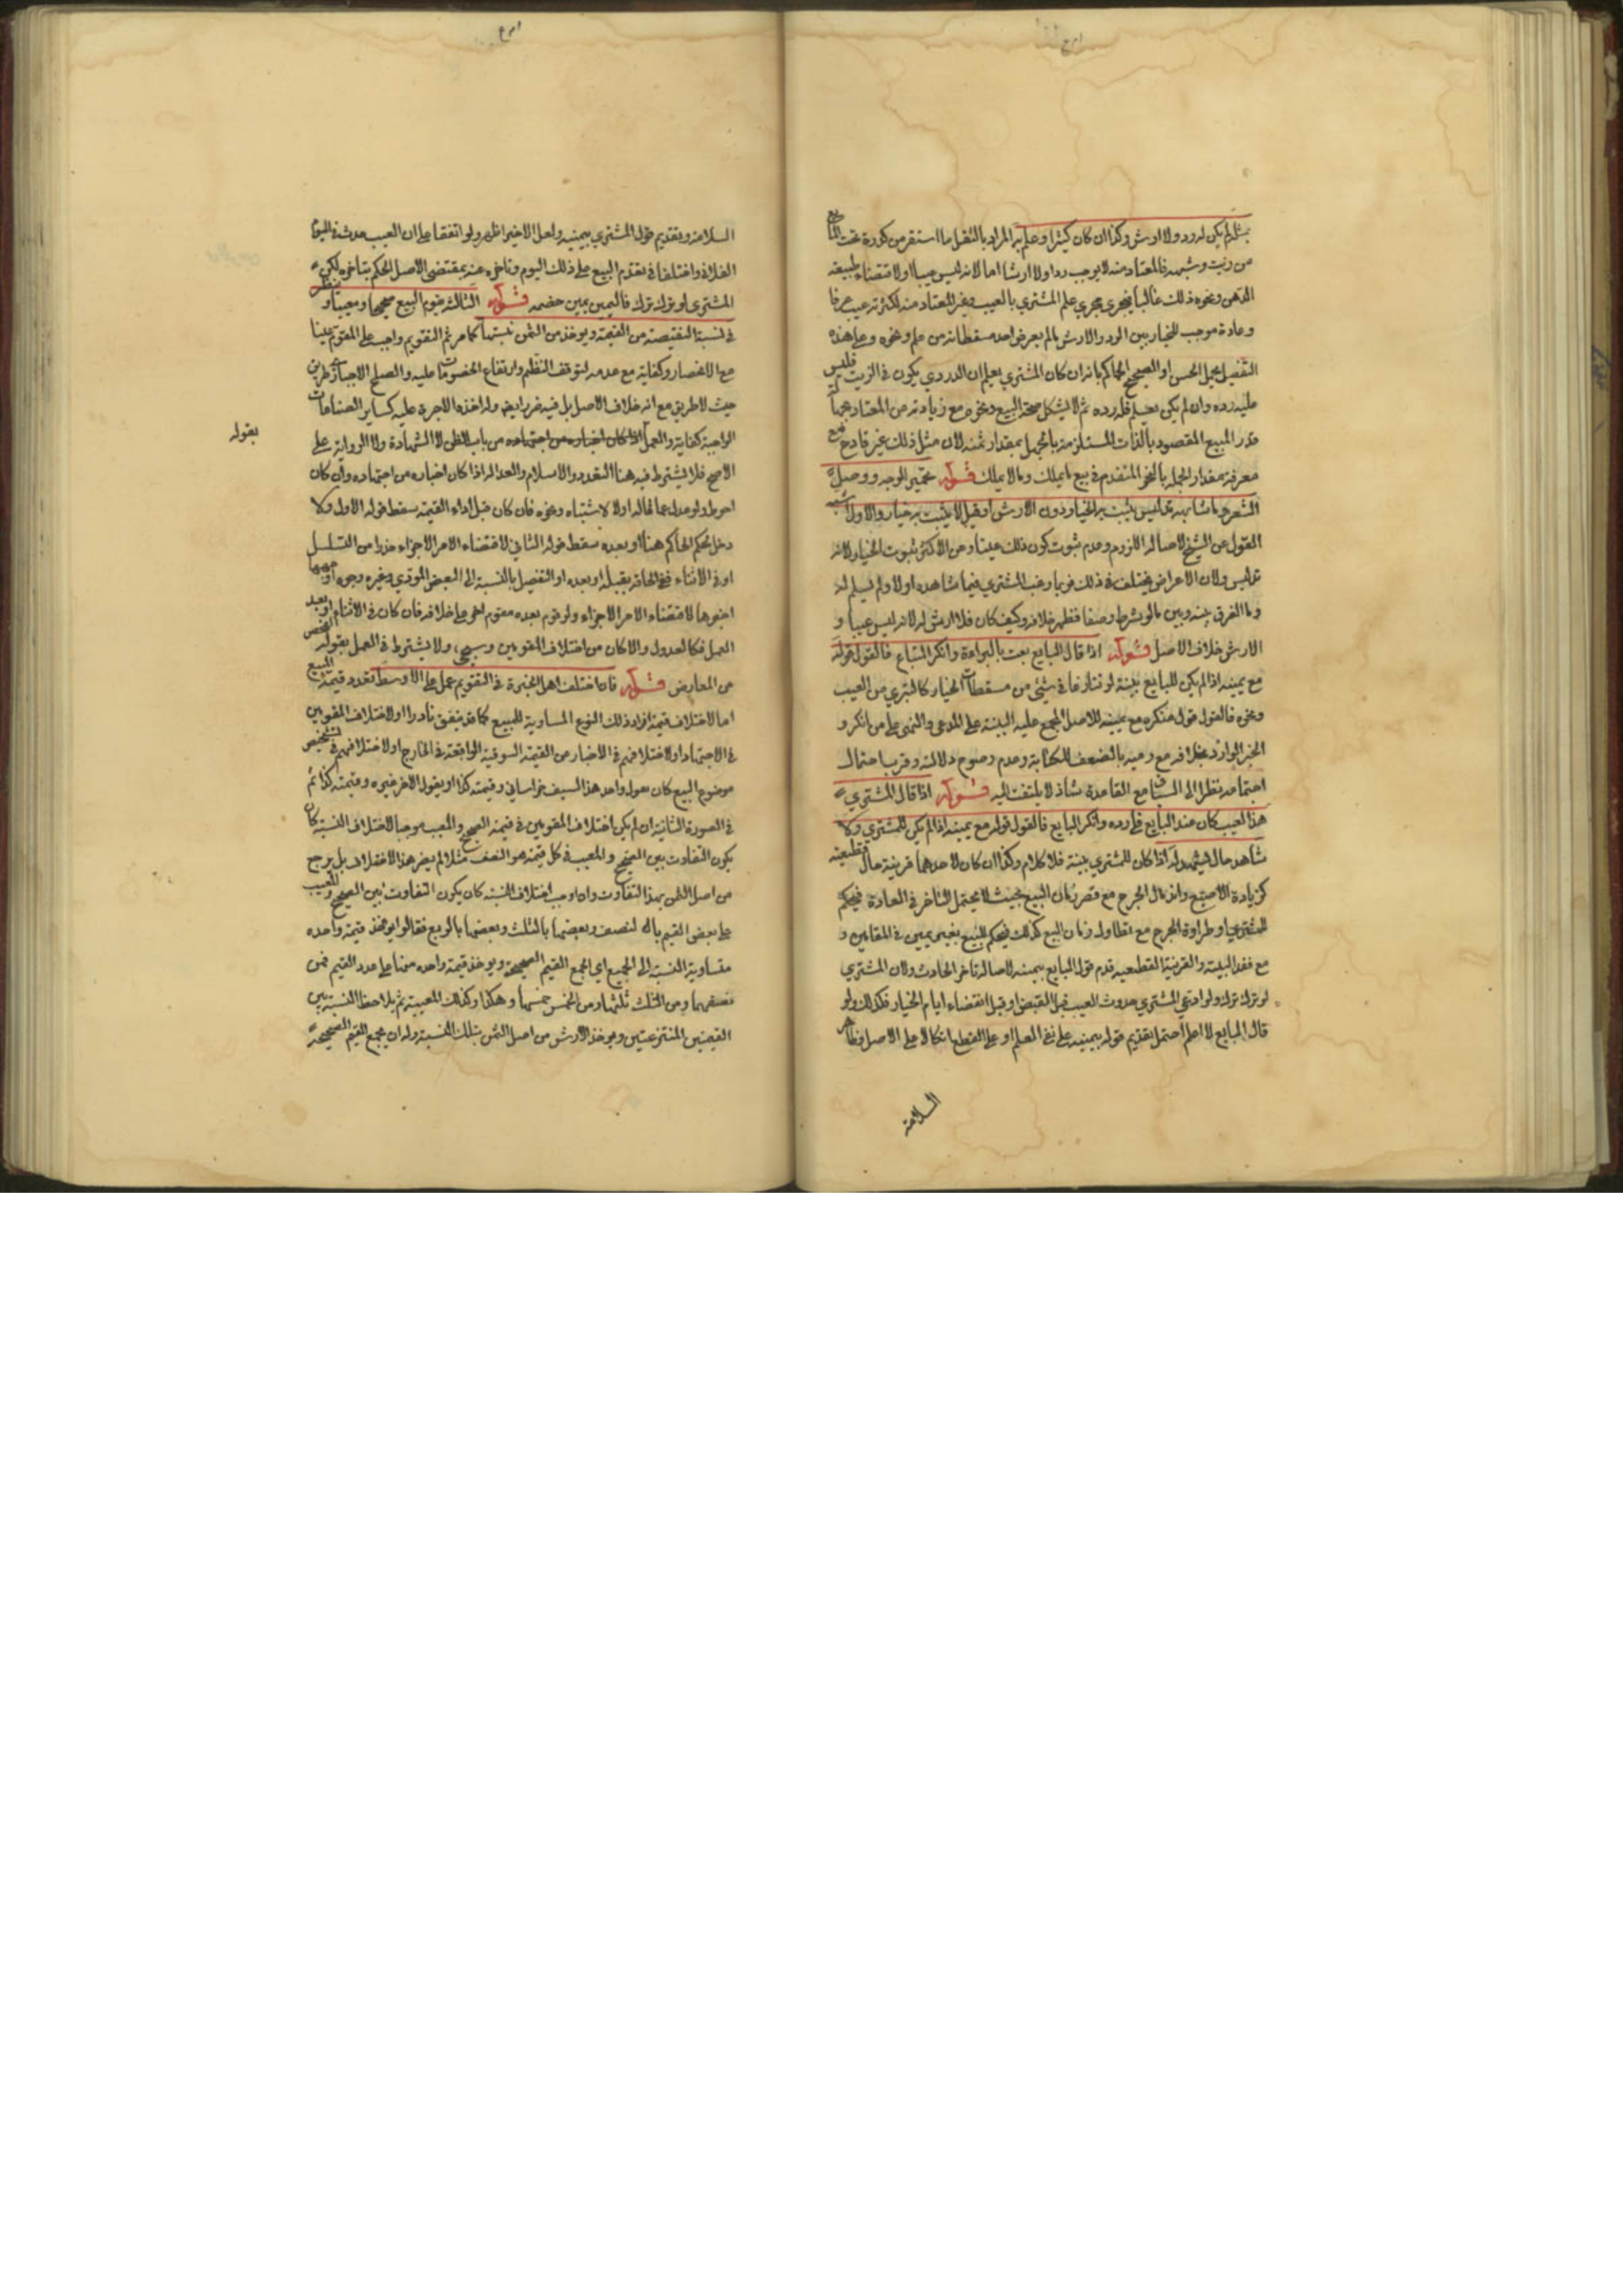 بمثله لم يكن له رد ولا ارش وكذا ان كان كثيرا وعلم به المراد بالثفل ما استقر من كدرة تحت المايع
من زيت وشبهه فالمعتاد منه لا يوجب ردا ولا ارشا اما لانه ليس عيبا او لاقتضاء طبيعة
الدهن ونحوه ذلك غالبا فيجري مجري علم المشتري بالعيب وغير المعتاد منه لكثرته عيب عرفا
وعادة موجب للخيار بين الرد والارش ما لم يعرض احد مسقطاته من علم ونحوه وعلى هذه
التفصيل يحمل الحسن او الصحيح الحاكم بانه ان كان المشتري يعلم ان الدردي يكون في الزيت فليس
عليه رده وان لم يكن يعلم فله رده ثم لا يشكل صحة البيع ونحوه مع زيادته من المعتاد بجهالة
قدر المبيع المقصود بالذات المستلزمة بالمجمل بمقدار ثمنه لان مثل ذلك غير قادح مع
معرفة مقدار الجملة بالنحو المتقدم في بيع ما يملك وما لا يملك قوله تحمير الوجه ووصل
الشعر وما شابهه تدليس يثبت به الخيار دون الارش او قيل لا يثبت به خيار والاول اشبه
القول عن الشيخ لاصالة اللزوم وعدم ثبوت كون ذلك عيبا وعن الاكثر ثبوت الخيار لانه
تدليس ولان الاعراض يختلف في ذلك فربما رغب المشتري فيما شاهده اولا ولم يسلم له
وما الفرق بينه وبين ما لو شرط وصفا فظهر خلافه وكيف كان فلا ارش له لانه ليس عيبا و
الارش خلاف الاصل قوله اذا قال البايع بعت بالبراءة وانكر المبتاع فالقول قوله
مع يمينه اذا لم يكن للبايع بينة لو تنازعا في شيء من مسقطات الخيار كالتبري من العيب
ونحوه فالقول قول منكره مع يمينه للاصل المجمع عليه البينة على المدعي واليمين على من انكر و
الخبر الوارد بخلافه مع رميه بالضعف للكتابة وعدم وضوح دلالته وقرب احتمال
مع القاعدة شاذ لا يلتفت اليه قوله اذا قال المشتري
هذا العيب كان عند البايع فلي رده وانكر البايع فالقول قوله مع يمينه اذا لم يكن للمشتري ولا
شاهد حال يشهد له اذا كان للمشتري بينة فلا كلام وكذا ان كان لاحدهما قرينة حال قطعية
كزيادة الاصبع واندمال الجرح مع قصر زمان البيع بحيث لا يحتمل التاخر في العادة فيحكم
للمشتري او طراوة الجرح مع تطاول زمان البيع كذلك فيحكم للبيع بغير يمين في المقامين و
مع فقد البينة والقرينة القطعية قدم قول البايع بيمينه لاصالة تاخر الحادث ولان المشتري
لو ترك ترك ولو ادعى المشتري حدوث العيب قبل القبض او قبل انقضاء ايام الخيار فكذلك ولو
قال البايع لا اعلم احتمل تقديم قوله بيمينه على نفي العلم او على القطع اتكالا على الاصل وظاهر
السلامة
السلامة وتقديم قول المشتري بيمينه ولعل الاخير اظهر ولو اتفقا على ان العيب حدث في اليوم
الفلاني واختلفا في تقدم البيع على ذلك اليوم وتاخره عنه بمقتضى الاصل الحكم بتاخره لكن
المشتري لو ترك ترك فاليمين يمين خصمه قوله الثالثة يقوم المبيع صحيحا ومعيبا وينظر
في نسبة النقيصة من القيمة ويوخذ من الثمن بنسبتها كما مر ثم التقويم واجب على المقوم عينا
مع الانحصار وكفاية مع عدمه لتوقف النظم وارتفاع الخصومات عليه والصلح الاجباري طريق
حيث لا طريق مع انه خلاف الاصل بل فيه ضرر ايضا وله اخذ الاجرة عليه كساير الصناعات
الواجبة كفاية والعمل اذا كان اخباره من اجتهاده من باب الظن لا الشهادة ولا الرواية على
الاصح فلا يشترط فيه هنا التعدد والاسلام والعدالة اذا كان اخباره من اجتهاده وان كان
احوط ولو عدل عما قاله اولا لاشتباه ونحوه فان كان قبل اداء القيمة سقط قوله الاول ولا
دخل لحكم الحاكم هنا او بعده سقط قوله الثاني لاقتضاء الامر الاجزاء حذرا من التسلسل
او في الاثناء ففي الحاقه بقبله او بعده او التفصيل بالنسبة الى البعض المودى وغيره وجوه اوجهها
اخيرها لاقتضاء الامر الاجزاء ولو قوم بعده مقوم اخر على خلافه فان كان في الاثناء او بعد
العمل فكالعدول والا كان من اختلاف المقومين وسيجيء ولا يشترط في العمل بقوله الفحص
عن المعارض قوله فان اختلف اهل الخبرة في التقويم عمل على الاوسط تعدد قيمة المبيع
اما لاختلاف قيمة افراد ذلك النوع المساوية للمبيع كما قد يتفق نادرا او لاختلاف المقومين
في الاجتهاد او لاختلافهم في الاخبار من القيمة السوقية الواقعة في الخارج او لاختلافهم في تشخيص
موضوع المبيع كان يقول واحد هذا السيف خراساني وقيمته كذا او يقول الاخر غيره وقيمته كذا ثم
في الصورة الثانية ان لم يكن اختلاف المقومين في قيمة الصحيح والمعيب موجبا لاختلاف النسبة كان
يكون التفاوت بين الصحيح والمعيب في كل قيمة هو النصف مثلا لم يضر هذا الاختلاف بل يرجع
من اصل الثمن بهذا التفاوت وان اوجب اختلاف النسبة كان يكون التفاوت بين الصحيح والمعيب
على بعض القيم بالنصف وبعضها بالثلث وبعضها بالربع فقالوا يوخذ قيمة واحدة
متساوية النسبة الى الجميع اي يجمع القيم الصحيحة ويوخذ قيمة واحدة منها على عدد القيم فمن
نصفهما ومن الثلث ثلثها ومن الخمس خمسها وهكذا وكذلك المعيبة ثم يلاحظ النسبة بين
القيمتين المنتزعتين ويوخذ الارش من اصل الثمن بتلك النسبة وله ان يجمع القيم الصحيحة
بقوله